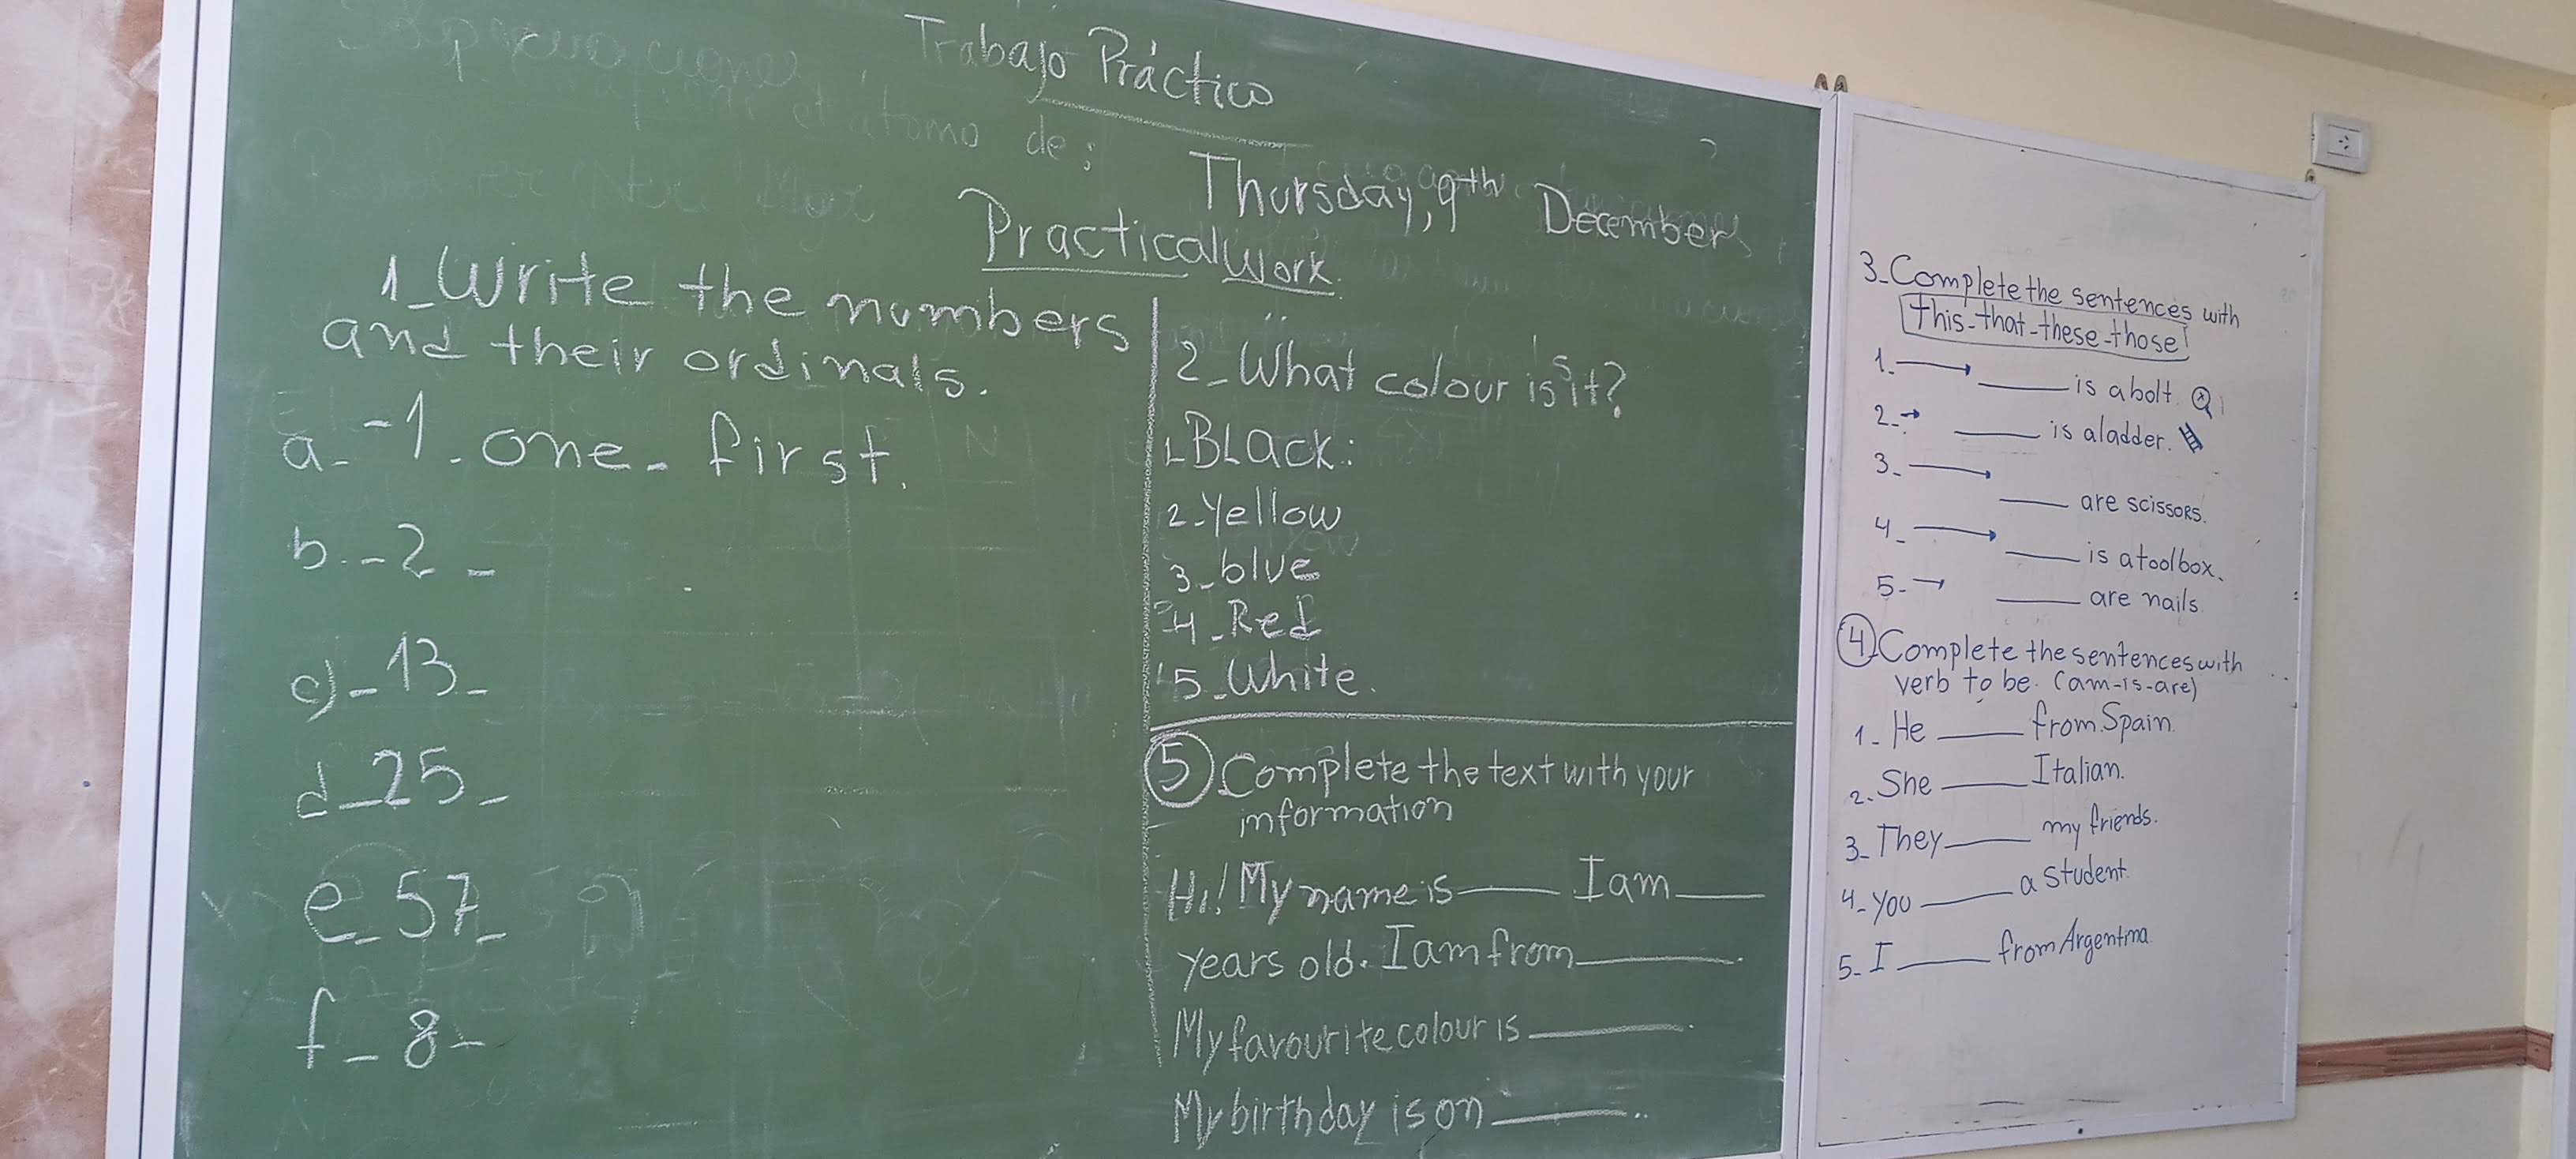 Trabajo Práctico
el átomo de:
Thursday, 9th December
Practical Work.
1_Write the numbers
and their ordinals.
a_ -1. one_ first.
b. -2 -
c) - 13 -
d_25 -
e_57_
f_8-
2_What colour is it?
1_BLack:
2-Yellow
3-blue
4-Red
5-White.
5 Complete the text with your
information
Hi! My name is ____ I am ____
years old. I am from ____.
My favourite colour is ____.
My birthday is on ____..
3_Complete the sentences with
this-that-these-those
1_→ ____ is a bolt.
2_→ ____ is a ladder.
3_→ ____ are scissors.
4_→ ____ is a toolbox.
5-→ ____ are nails
4 Complete the sentences with
verb to be. (am-is-are)
1- He ____ from Spain.
2. She ____ Italian.
3_They ____ my friends.
4-You ____ a student.
5_I ____ from Argentina